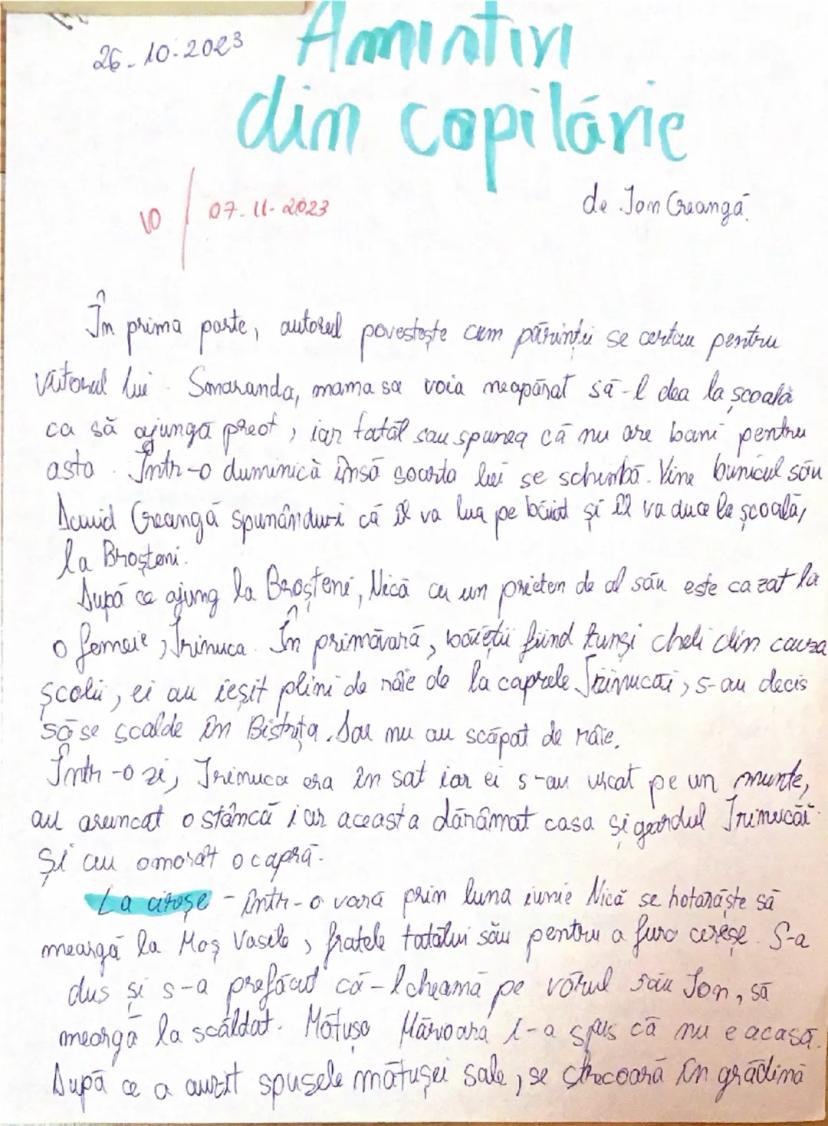 26-10-2023
Amintiri
din copilărie
10 / 07-11-2023
de Ion Creangă
În prima parte, autorul povestește cum părinții se certau pentru
viitorul lui. Smaranda, mama sa voia neapărat să-l dea la școală
ca să ajungă preot, iar tatăl sau spunea că nu are bani pentru
asta. Într-o duminică însă soarta lui se schimbă. Vine bunicul său
David Creangă spunându-i că îl va lua pe băiat și îl va duce la școală,
la Broșteni.
După ce ajung la Broșteni, Nică cu un prieten de al său este cazat la
o femeie, Irinuca. În primăvară, băieții fiind tunși cheli din cauza
școlii, ei au ieșit plini de râie de la caprele Irinucăi, s-au decis
să se scalde în Bistrița. Dar nu au scăpat de râie.
Într-o zi, Irinuca era în sat iar ei s-au urcat pe un munte,
au aruncat o stâncă iar aceasta dărâmat casa și gardul Irinucăi
și au omorât o capră.
La cireșe - într-o vară prin luna iunie Nică se hotărăște să
meargă la Moș Vasile, fratele tatălui său pentru a fura cireșe. S-a
dus și s-a prefăcut că-l cheamă pe vărul său Ion, să
meargă la scăldat. Mătușa Mărioara i-a spus că nu e acasă.
După ce a auzit spusele mătușei sale, se strecoară în grădină